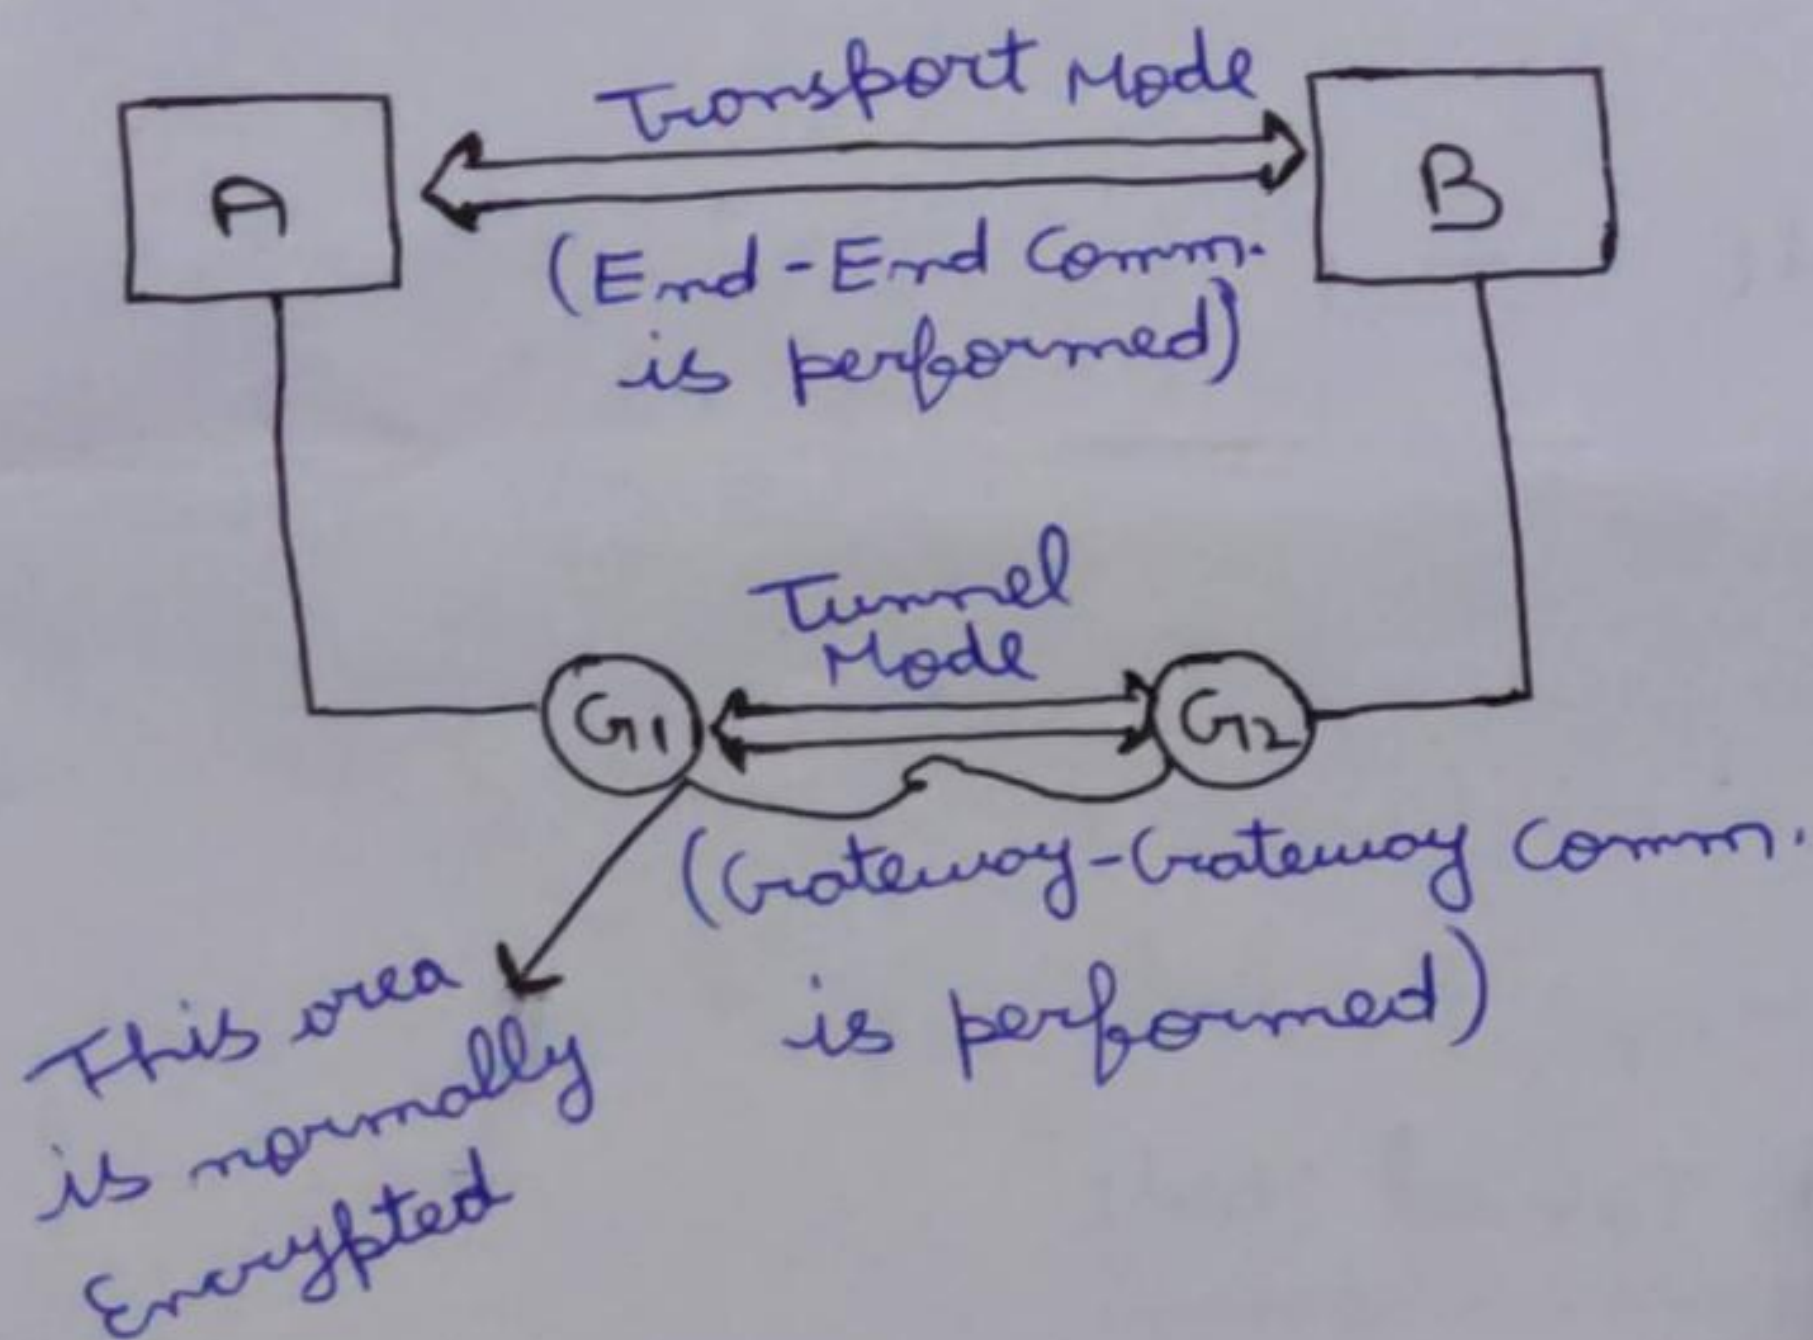 Transport Mode
A
B
(End-End Comm.
is performed)
Tunnel
Mode
G1
G2
(Gateway-Gateway Comm.
is performed)
This area
is normally
Encrypted